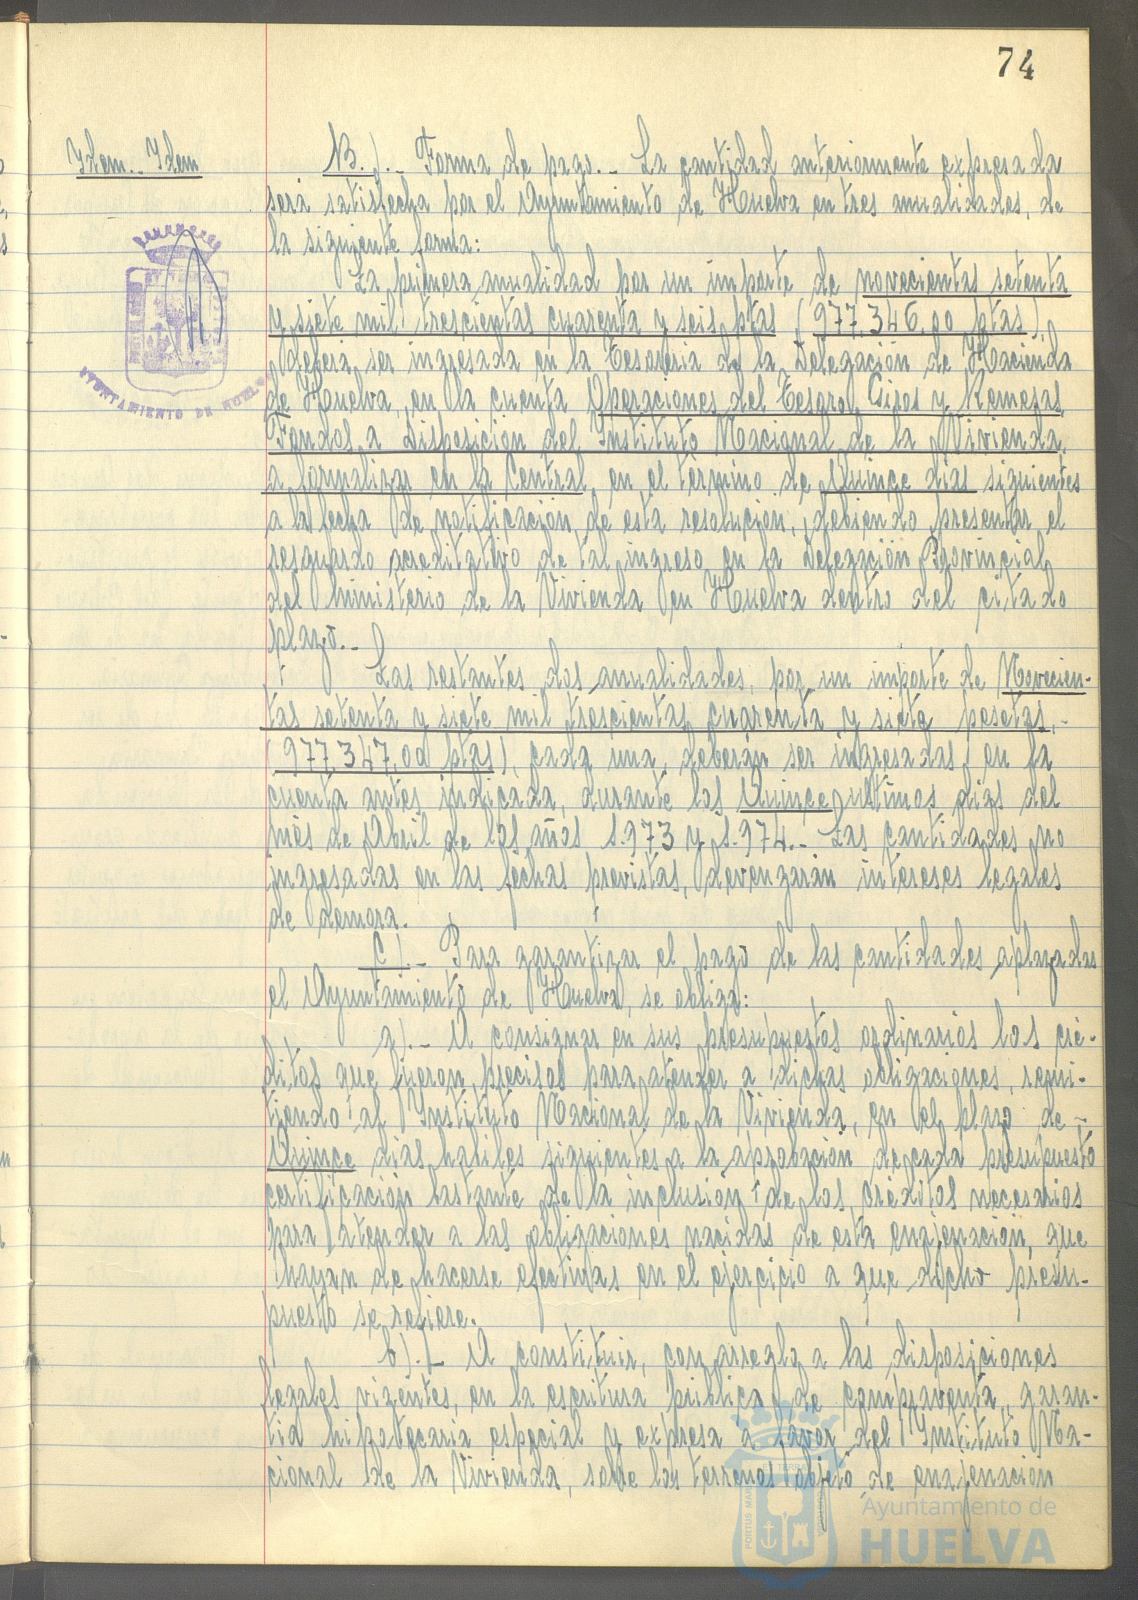 74
Idem.- Idem
B.).- Forma de pago.- La cantidad anteriormente expresada
será satisfecha por el Ayuntamiento de Huelva en tres anualidades, de
la siguiente forma:
La primera anualidad por un importe de novecientas setenta
y siete mil trescientas cuarenta y seis ptas (977.346,00 ptas)
deberá ser ingresada en la Tesorería de la Delegación de Hacienda
de Huelva, en la cuenta Operaciones del Tesoro, Giros y Remesas
Fondos a Disposición del Instituto Nacional de la Vivienda
a formalizar en la Central, en el término de Quince días siguientes
a la fecha de notificación de esta resolución, debiendo presentar el
resguardo acreditativo de tal ingreso en la Delegación Provincial
del Ministerio de la Vivienda en Huelva dentro del citado
plazo.-
Las restantes dos anualidades, por un importe de Novecien-
tas setenta y siete mil trescientas cuarenta y siete pesetas,-
(977.347,00 ptas), cada una, deberán ser ingresadas en la
cuenta antes indicada, durante los Quince últimos días del
mes de Abril de los años 1.973 y 1.974.- Las cantidades no
ingresadas en las fechas previstas, devengarán intereses legales
de demora.
C).- Para garantizar el pago de las cantidades aplazadas
el Ayuntamiento de Huelva, se obliga:
a).- A consignar en sus presupuestos ordinarios los cré-
ditos que fueron precisos para atender a dichas obligaciones, remi-
tiendo al Instituto Nacional de la Vivienda, en el plazo de-
Quince días hábiles siguientes a la aprobación de cada presupuesto
certificación bastante de la inclusión de los créditos necesarios
para atender a las obligaciones nacidas de esta enajenación, que
hayan de hacerse efectivas en el ejercicio a que dicho presu-
puesto se refiere.
b).- A constituir, con arreglo a las disposiciones
legales vigentes, en la escritura pública de compraventa, garan-
tía hipotecaria especial y expresa a favor del Instituto Na-
cional de la Vivienda, sobre los terrenos objeto de enajenación
AYUNTAMIENTO DE HUELVA
Ayuntamiento de
HUELVA